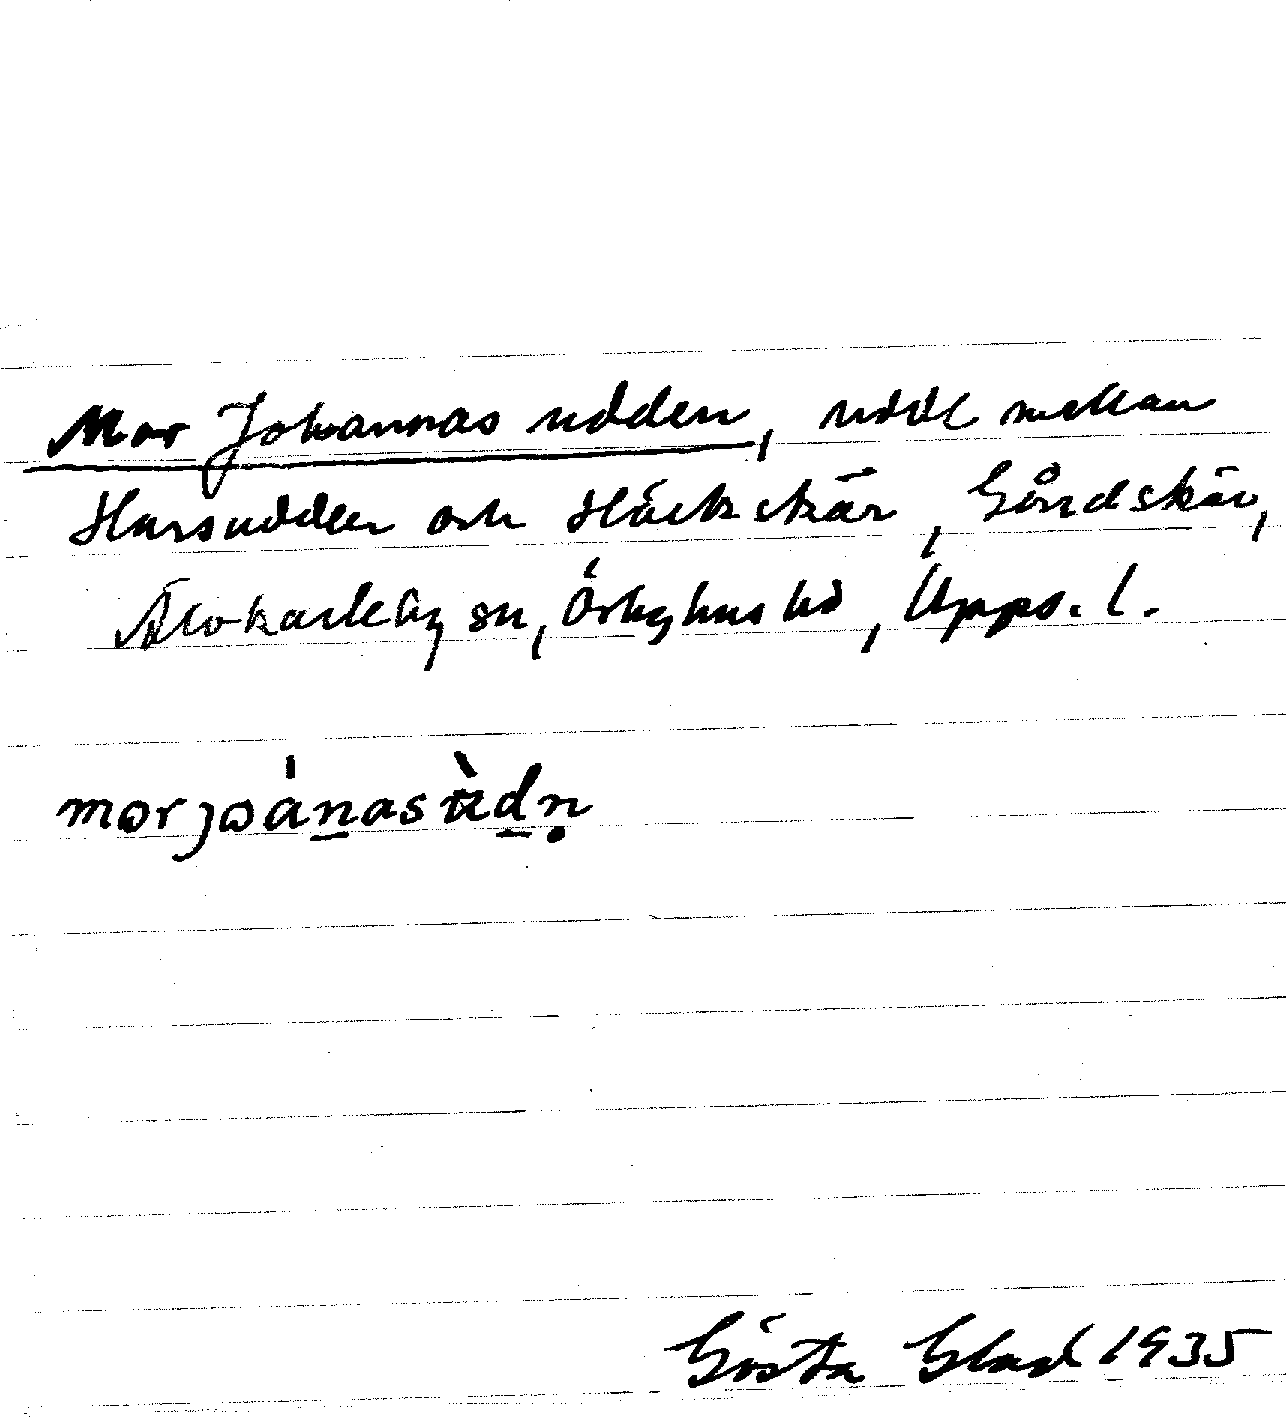 Mor Johannas udden, udde mellan
Harsudden och Häckskär, Gårdskär,
Älvkarleby sn, Örbyhus hd, Upps. l.
mɷrȷɷánasʉ̀dn̥
Gösta Glad 1935